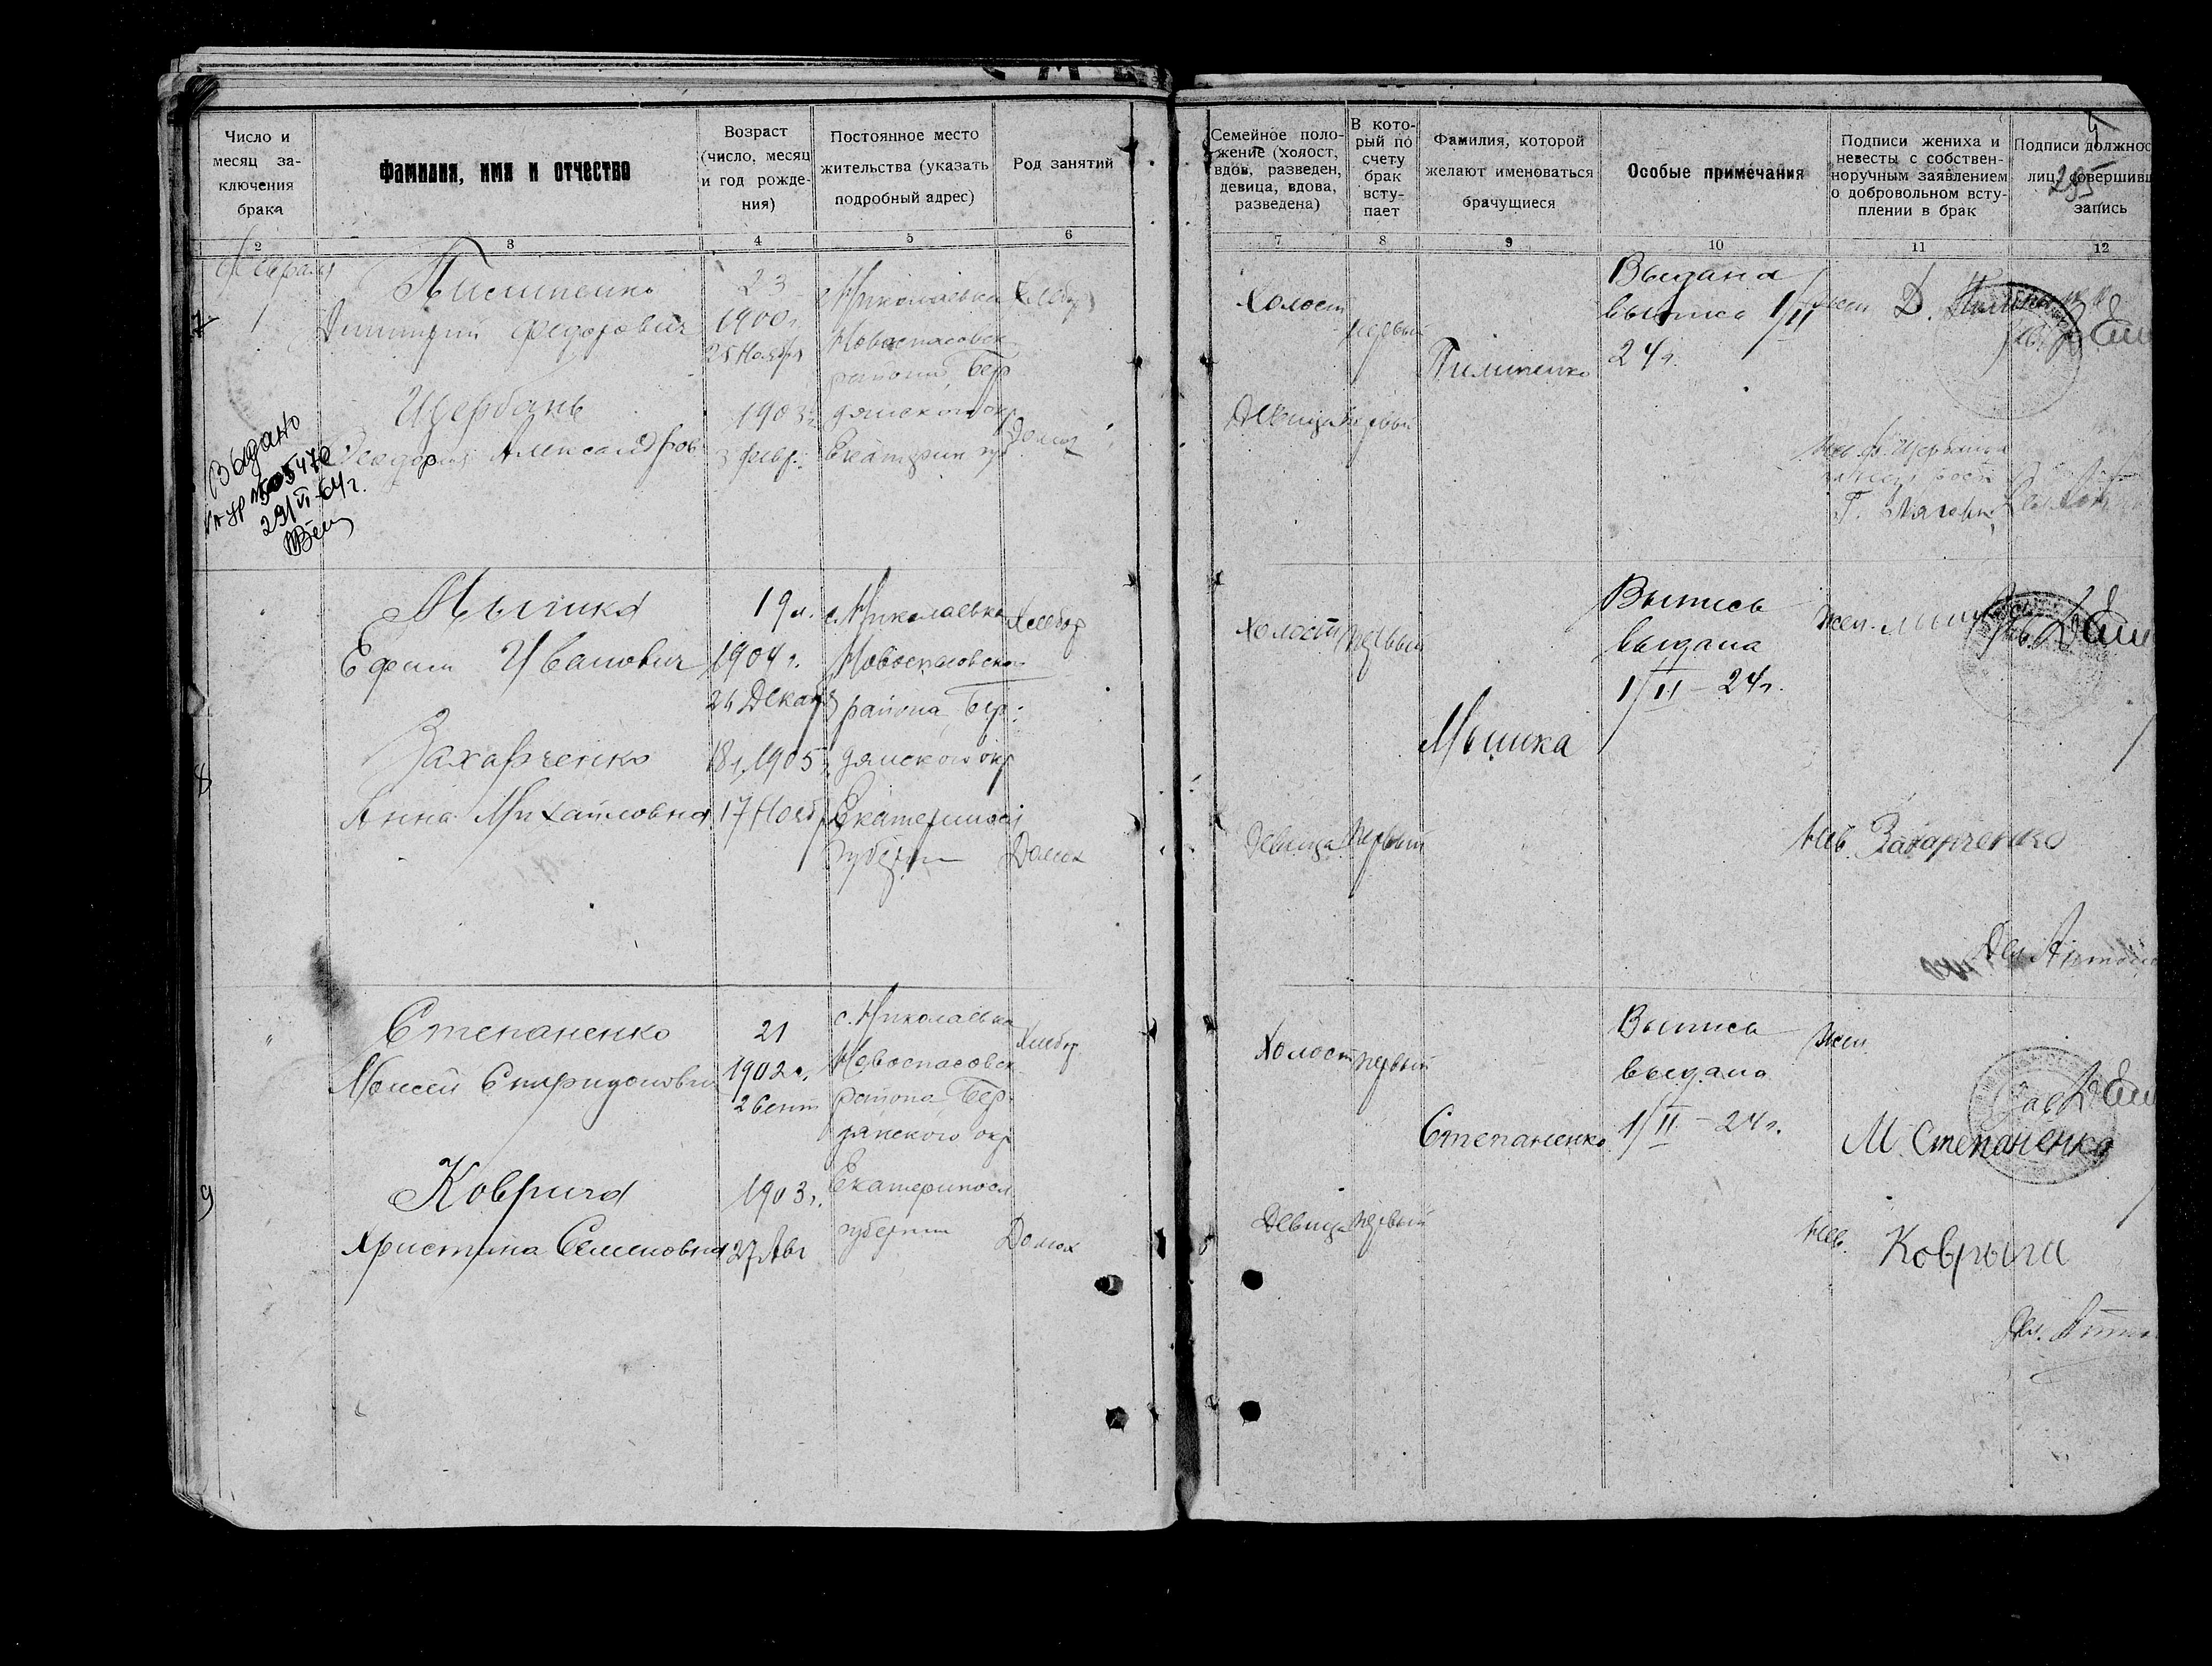 Число и месяц заключения брака
Фамилия, имя и отчество
Возраст (число, месяц и год рождения)
Постоянное место жительства (указать подробный адрес)
Род занятий
Семейное положение (холост, вдов, разведен, девица, вдова, разведена)
В который по счету брак вступает
Фамилия, которой желают именоваться брачущиеся
Особые примечания
Подписи жениха и невесты с собственноручным заявлением о добровольном вступлении в брак
Подписи должнос
лиц, совершивш
запись
2 3 4 5 6 7 8 9 10 11 12
7
1
Димитрий Федорович
23
1900 г.
25 Ноября
с. Николаевка
Новоспасовск
района, Бер
дянского окр
Хлебор
Щербань
Александров
1903 г.
3 февр.
Домох
Выдано
29/VI-64 г.
Холост
первый
Пилипенко
Выдана
выпись 1/II
24 г.
Девица первый
8
Мышка
Ефим Иванович
19 л.
1904 г.
24 Декаб
с. Николаевка
Новоспасовско
района, Бер
дянского окр
Екатеринос
губернии
Хлебор
Захарченко
Анна Михайловна
18 л. 1905
17 Нояб
Домох
Холост первый
Мышка
Выпись
выдана
1/II - 24 г.
Жен.
Девица первый
Нев. Захарченко
9
Степаненко
Моисей Спиридонович
21
1902 г.
2 Сент
с. Николаевка
Новоспасовск
района, Бер
дянского окр
Екатеринос
губернии
Хлебор
Коврига
Христина Семеновна
1903 г.
27 Авг
Домох
Холост первый
Степаненко
Выпись
выдана
1/II - 24 г.
Жен.
М. Степаненко
Девица первый
Нев. Коврыга